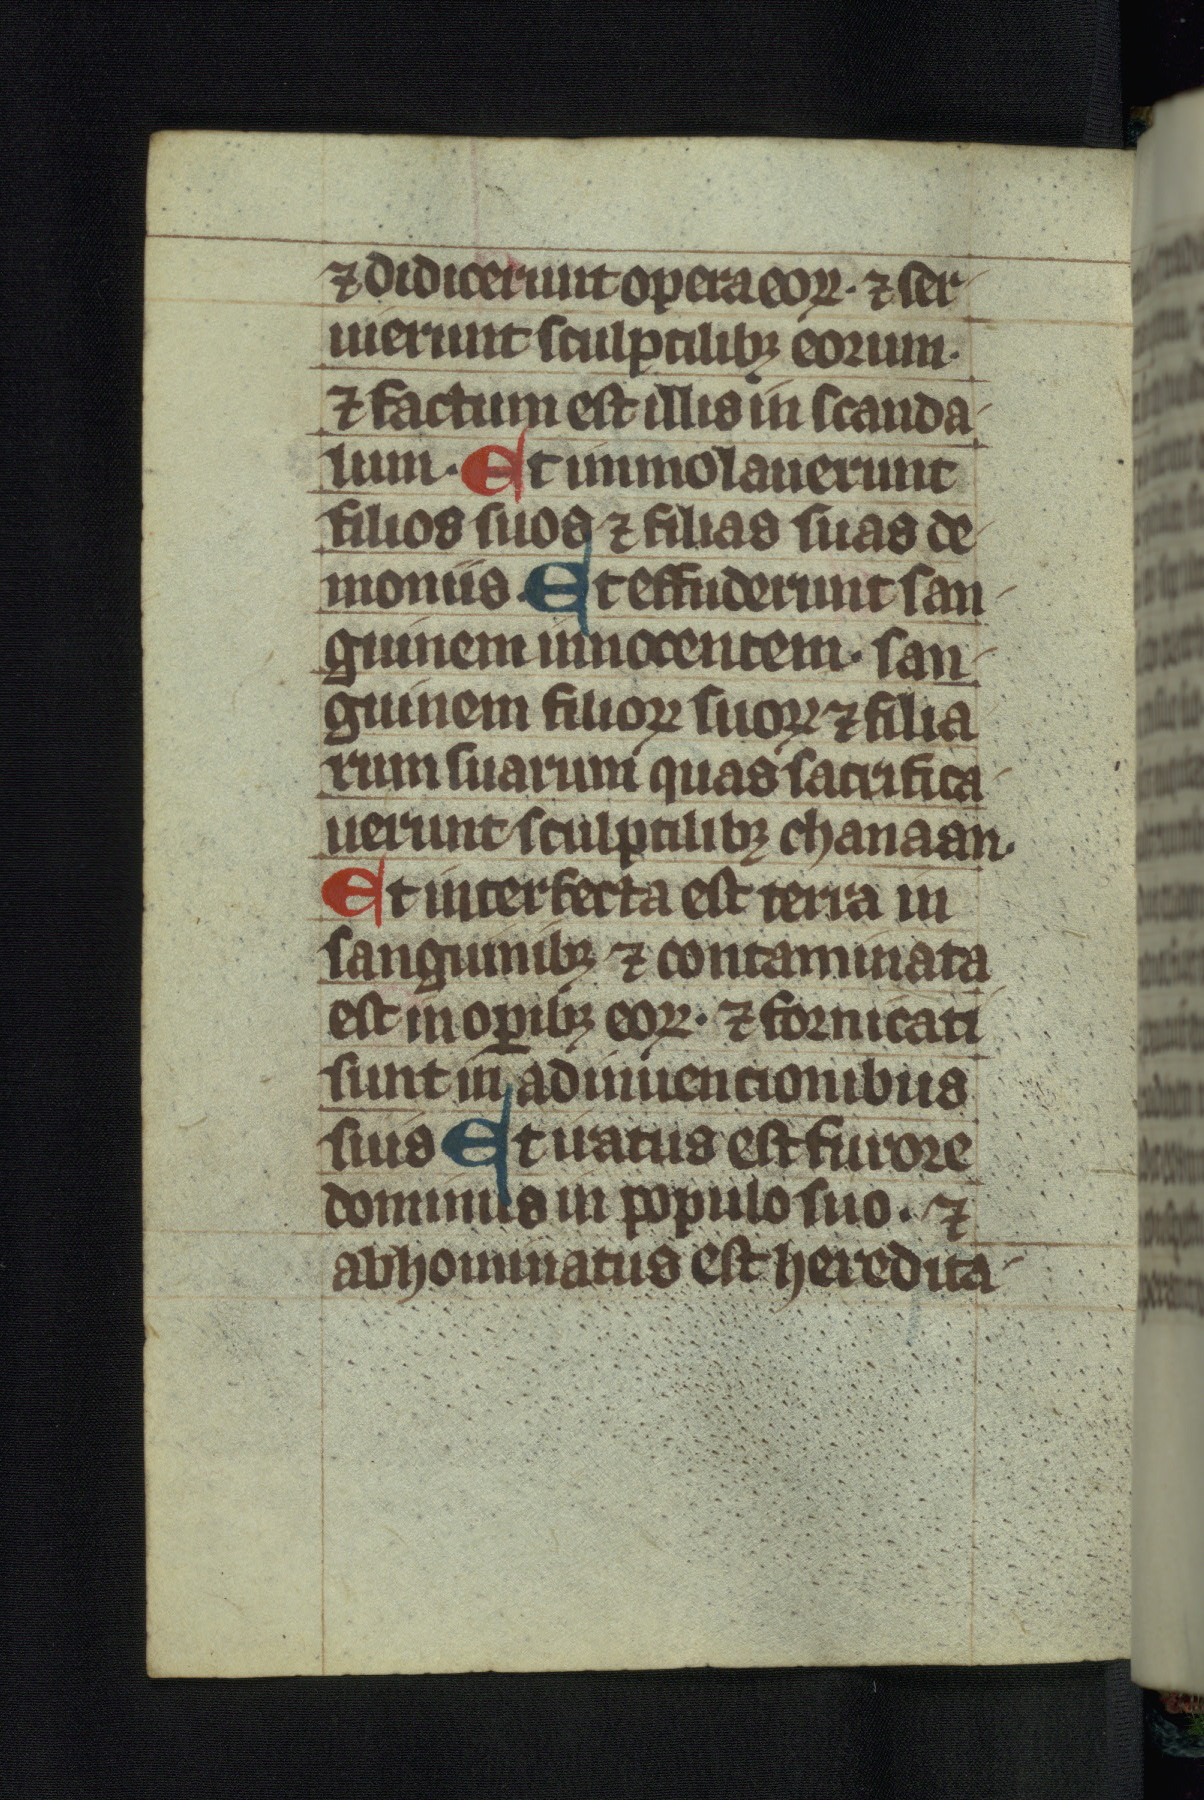 ⁊ didicerunt opera eoꝝ· ⁊ ser
uierunt sculptilibꝫ eorum·
⁊ factum est illis in scanda
lum· Et immolauerunt
filios suos ⁊ filias suas de
moniis· Et effuderunt san
guinem innocentem· san
guinem filioꝝ suoꝝ ⁊ filia
rum suarum quas sacrifica
uerunt sculptilibꝫ chanaan·
Et interfecta est terra in
sanguinibꝫ ⁊ contaminata
est in oꝑibꝫ eoꝝ· ⁊ fornicati
sunt in adinuencionibus
suis Et iratus est furore
dominus in populo suo· ⁊
abhominatus est heredita